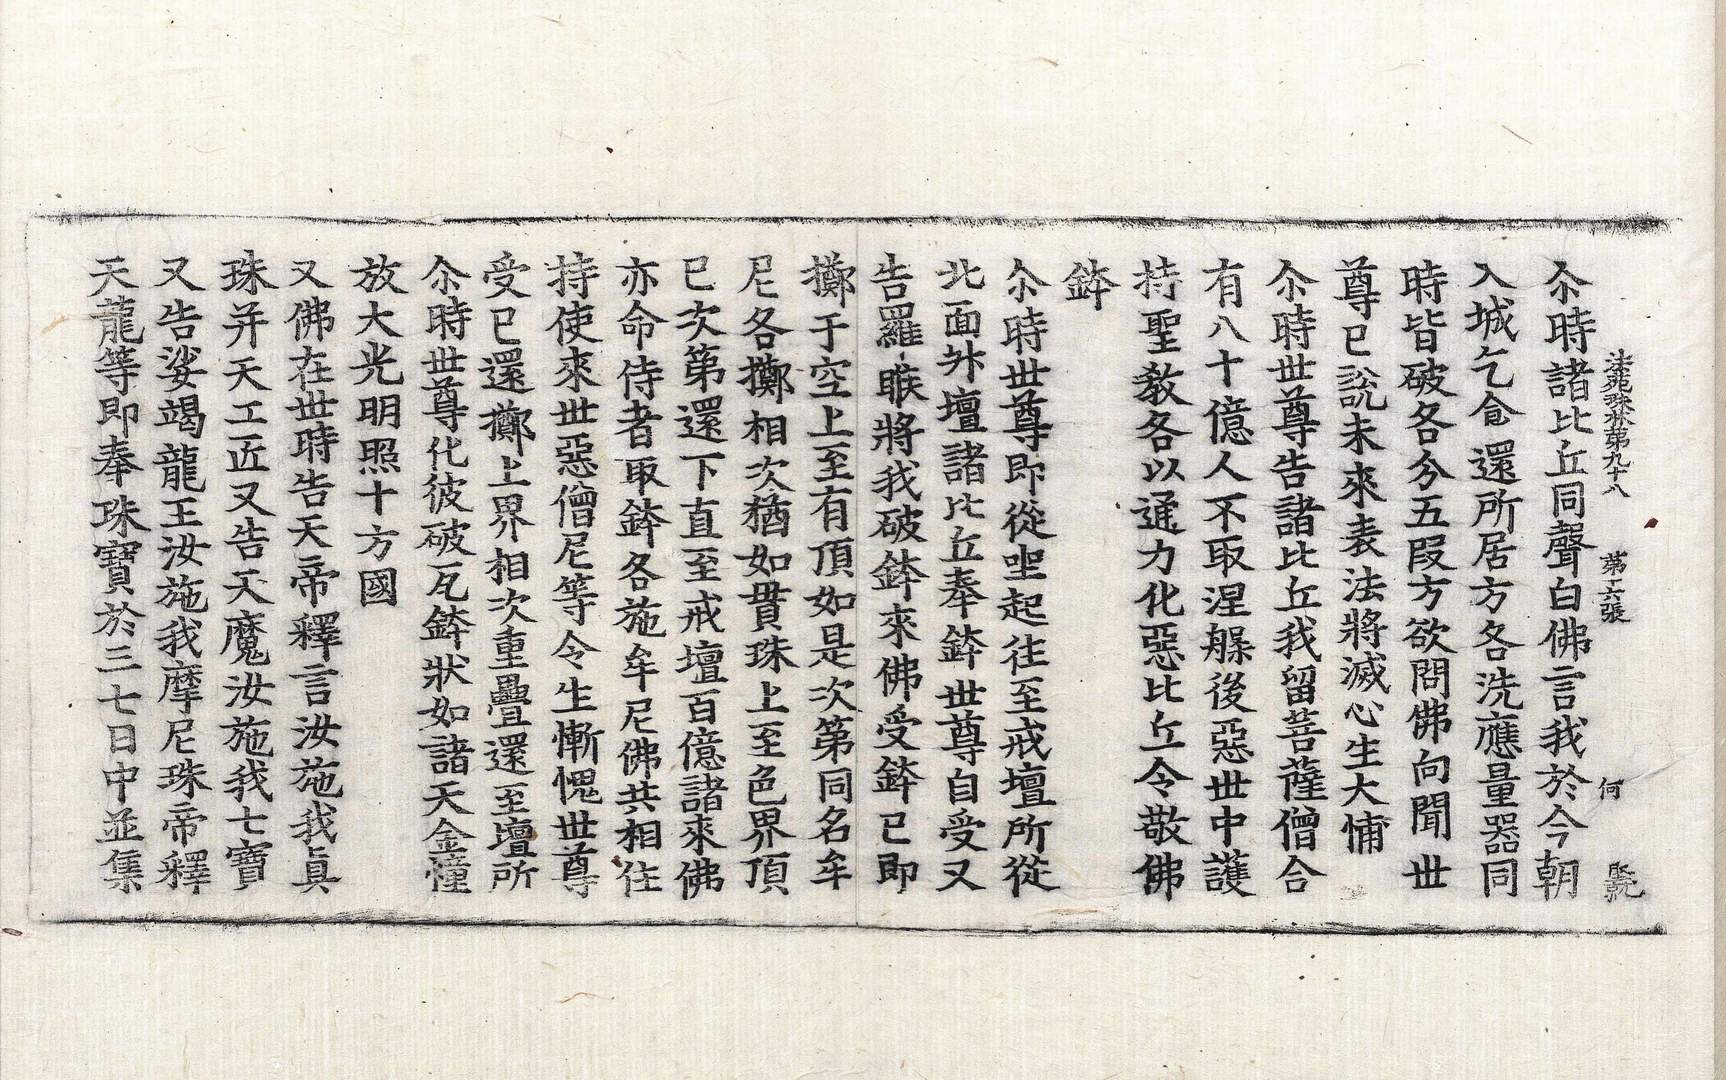 法苑珠林第九十八 第十六張 何
尒時諸比丘同聲白佛言我於今朝
入城乞食還所居方各洗應量器同
時皆破各分五段方欲問佛向聞世
尊已說未來表法將滅心生大怖
尒時世尊告諸比丘我留菩薩僧合
有八十億人不取涅槃後惡世中護
持聖教各以通力化惡比丘令敬佛
鉢
尒時世尊即從坐起往至戒壇所從
北面升壇諸比丘奉鉢世尊自受又
告羅睺將我破鉢來佛受鉢已即
擲于空上至有頂如是次第同名牟
尼各擲相次猶如貫珠上至色界頂
已次第還下直至戒壇百億諸來佛
亦命侍者取鉢各施牟尼佛共相住
持使來世惡僧尼等令生慚愧世尊
受已還擲上界相次重疊還至壇所
尒時世尊化彼破瓦鉢狀如諸天金幢
放大光明照十方國
又佛在世時告天帝釋言汝施我真
珠并天工匠又告天魔汝施我七寶
又告娑竭龍王汝施我摩尼珠帝釋
天龍等即奉珠寶於三七日中並集